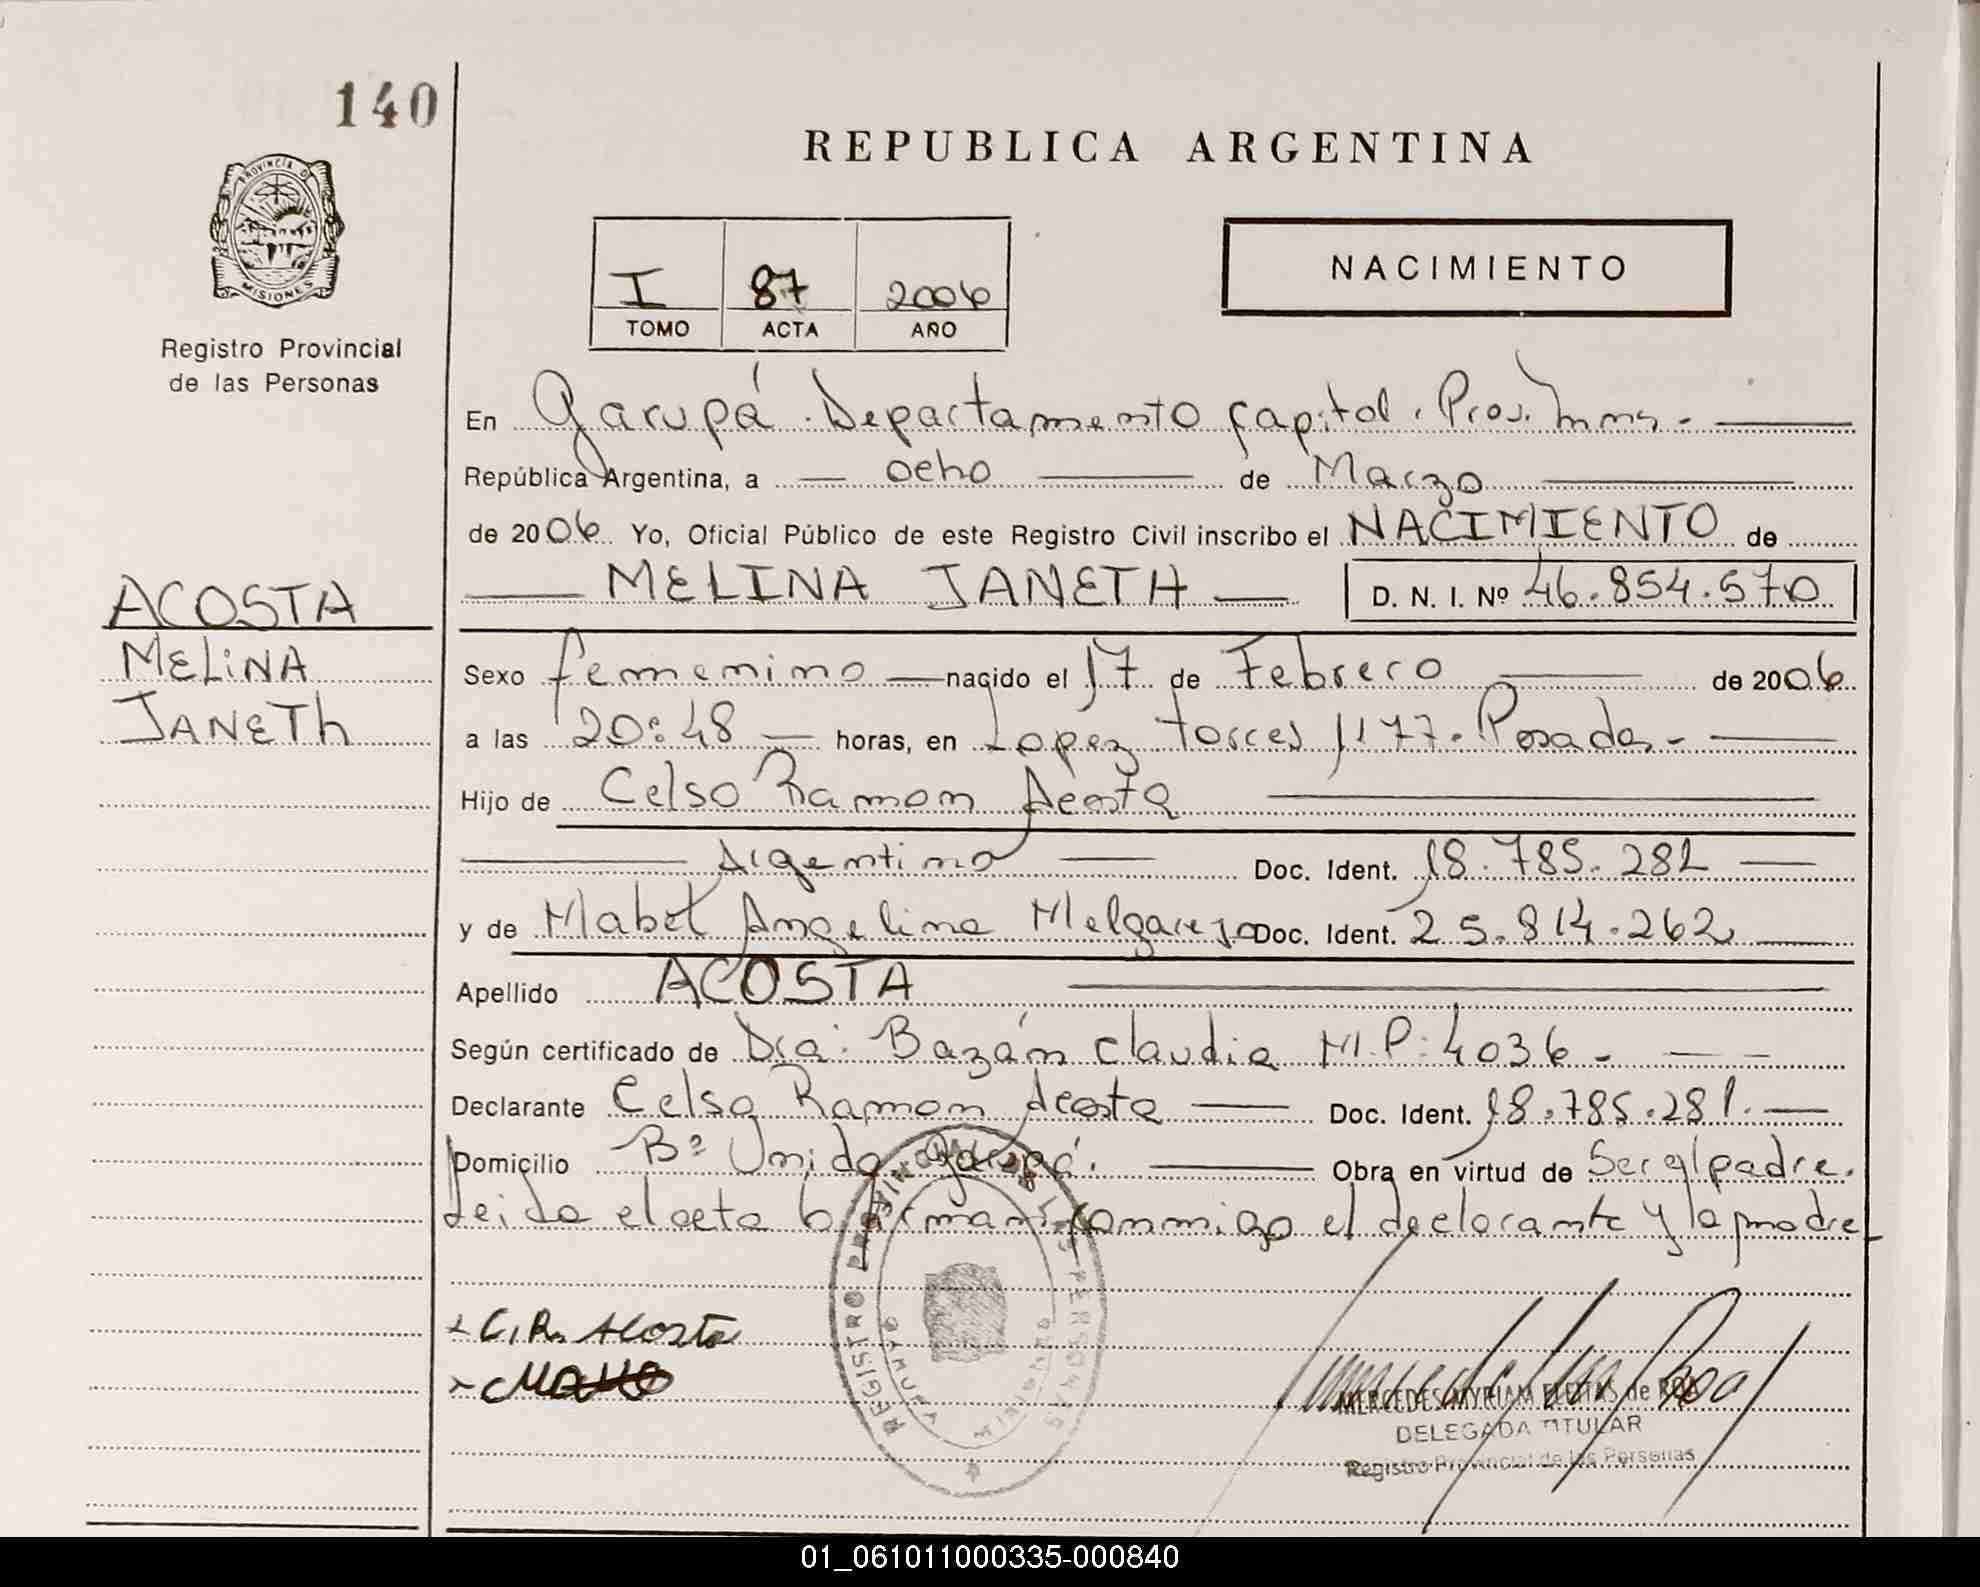 140
REPUBLICA ARGENTINA
PROVINCIA DE MISIONES
Registro Provincial
de las Personas
I 87 2006
TOMO ACTA AÑO
NACIMIENTO
En Garupá. Departamento Capital. Prov. Mns.-
República Argentina, a ocho de Marzo
de 2006 Yo, Oficial Público de este Registro Civil inscribo el NACIMIENTO de
MELINA JANETH D. N. I. Nº 46.854.570
ACOSTA
MELiNA
JANETh
Sexo femenino nacido el 17 de Febrero de 2006
a las 20:48 horas, en Lopez Torres 1177. Posadas-
Hijo de Celso Ramon Acosta
Argentino Doc. Ident. 18.785.281
y de Mabel Angelina Melgarejo Doc. Ident. 25.814.262
Apellido ACOSTA
Según certificado de Dra: Bazán Claudia M.P: 4036-
Declarante Celso Ramon Acosta Doc. Ident. 18.785.281.
Domicilio Bº Unido Garupá. Obra en virtud de Ser el padre.
Leida el acta la firman conmigo el declarante y la madre-
C.R. Acosta
REGISTRO PROVINCIAL DE LAS PERSONAS
MERCEDES MYRIAM FLEITAS de ROA
DELEGADA TITULAR
Registro Provincial de las Personas
01_061011000335-000840